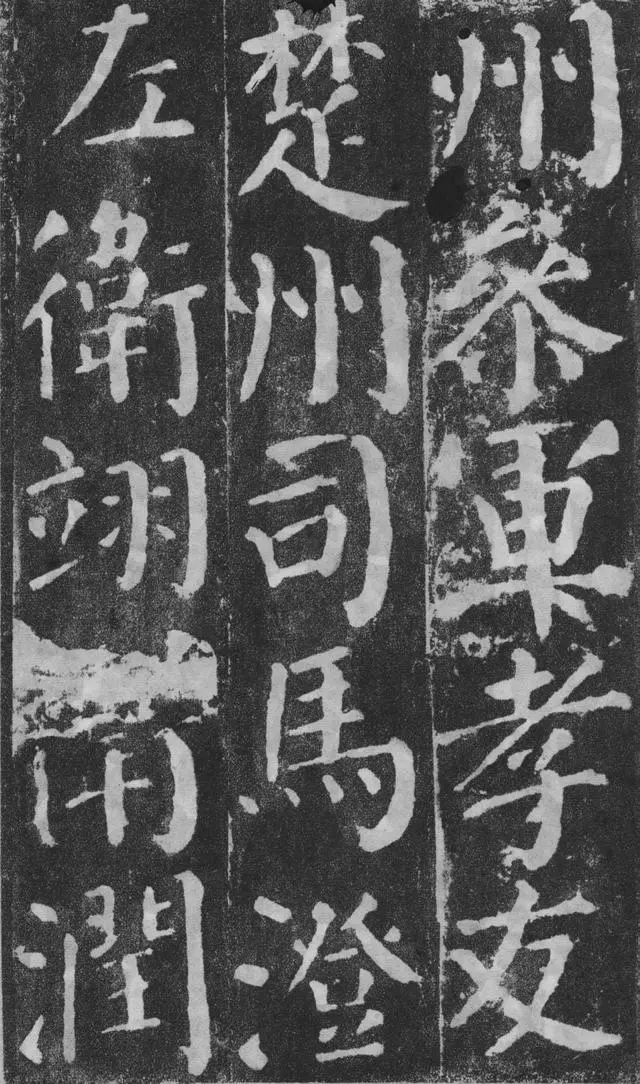 州參軍孝友
楚州司馬澄
左衛翊潤